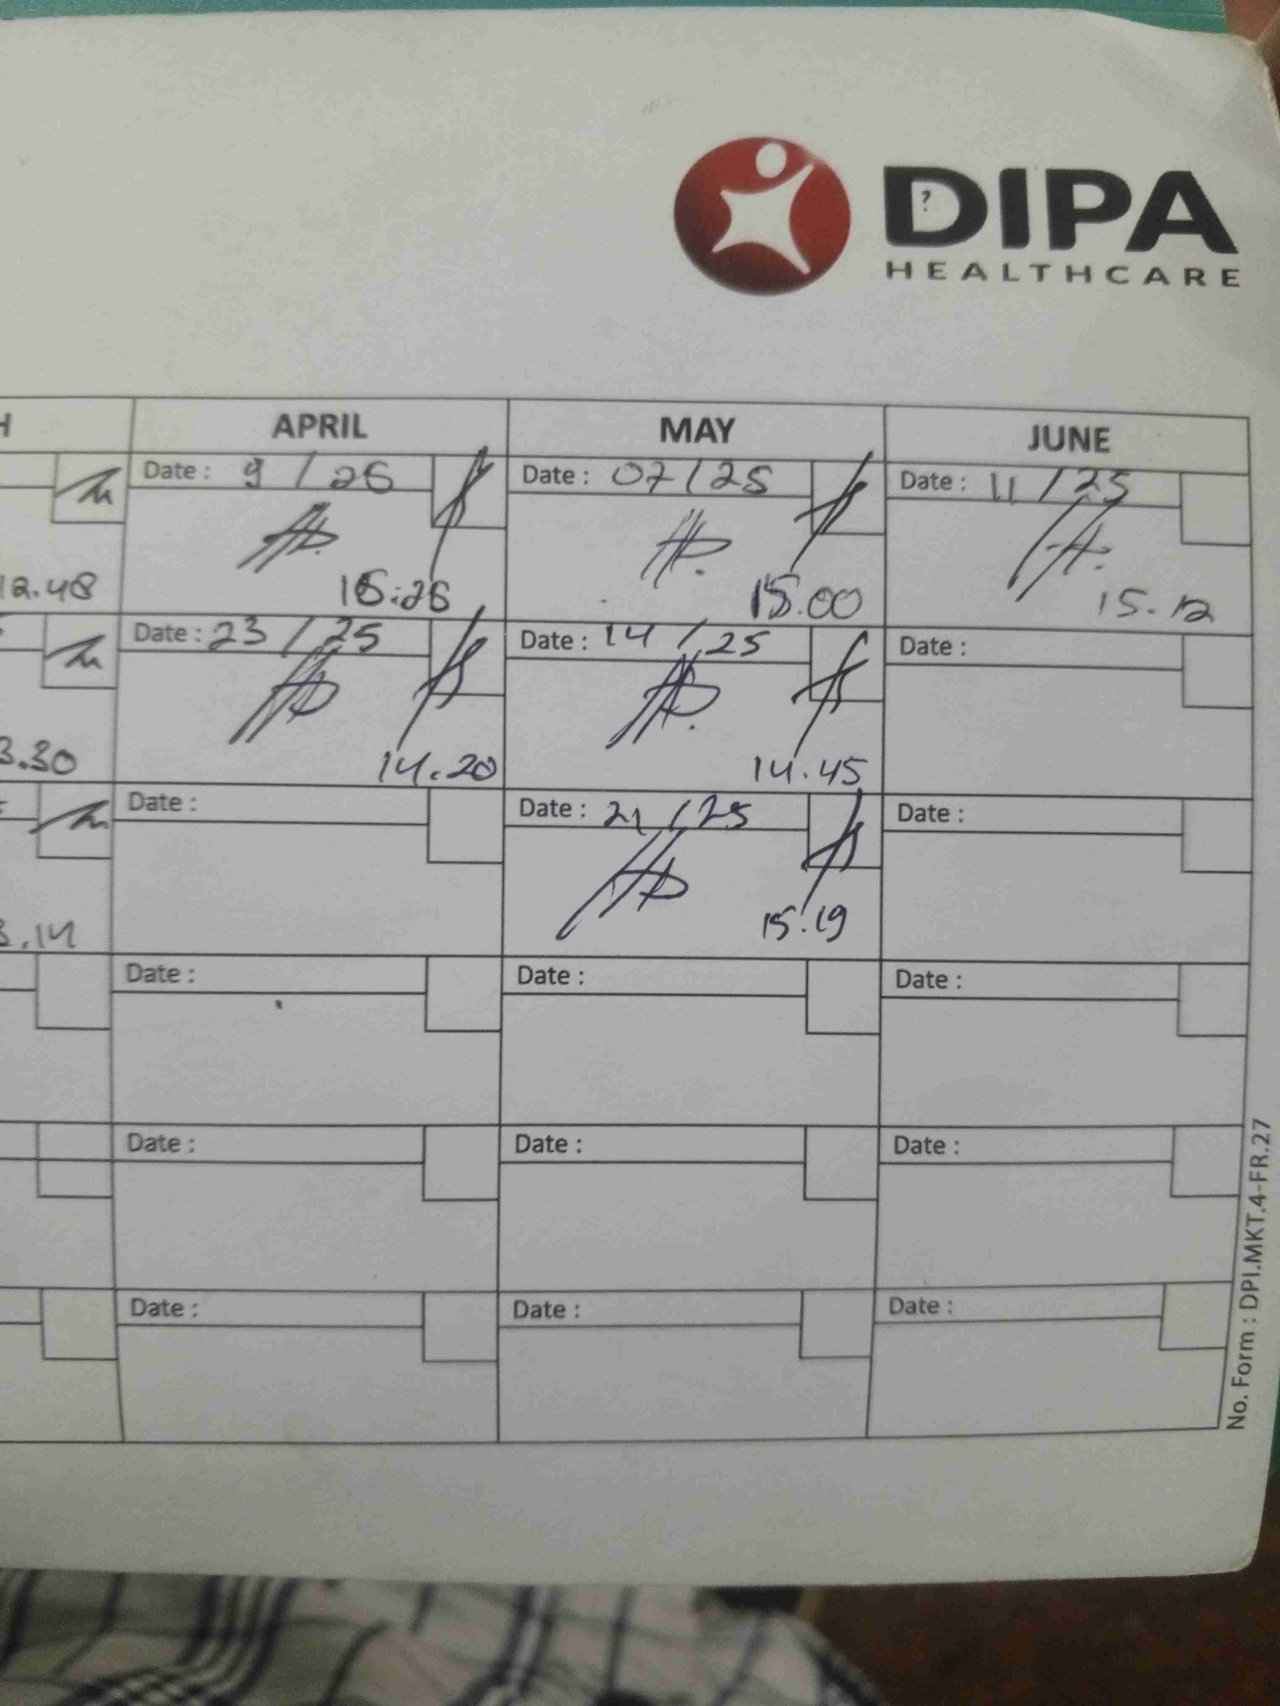 DIPA
HEALTHCARE
H APRIL MAY JUNE
Date : 9 / 26 Date : 07 / 25 Date : 11 / 25
12.48 15:26 15.00 15.12
Date : 23 / 25 Date : 14 / 25 Date :
3.30 14.20 14.45
Date : Date : 21 / 25 Date :
3.14 15.19
Date : Date : Date :
Date : Date : Date :
Date : Date : Date :
No. Form : DPI.MKT.4-FR.27